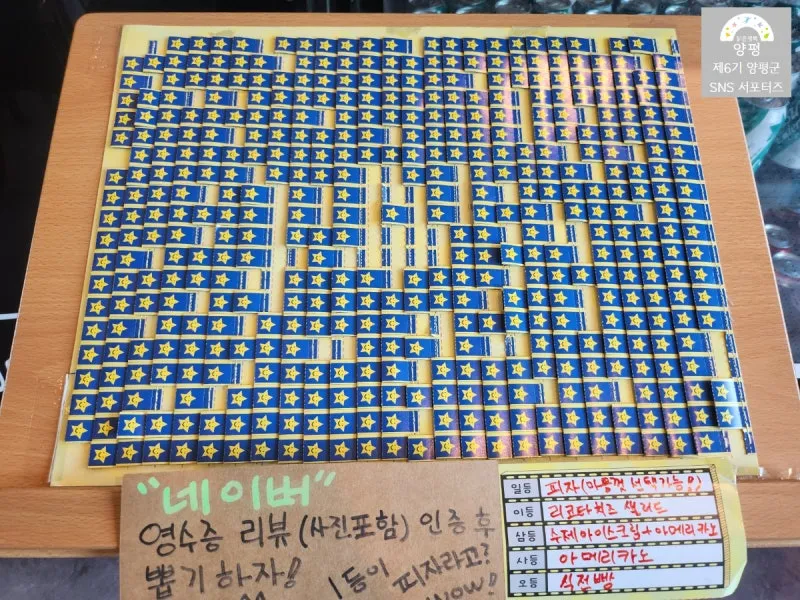 양평
제6기 양평군
SNS 서포터즈
"네이버"
영수증 리뷰 (사진포함) 인증 후
뽑기 하자!
1등이 피자라고?
wow!
일등 피자(마음껏 선택가능!)
이등 리코타치즈 샐러드
삼등 수제아이스크림+아메리카노
사등 아메리카노
오등 식전빵